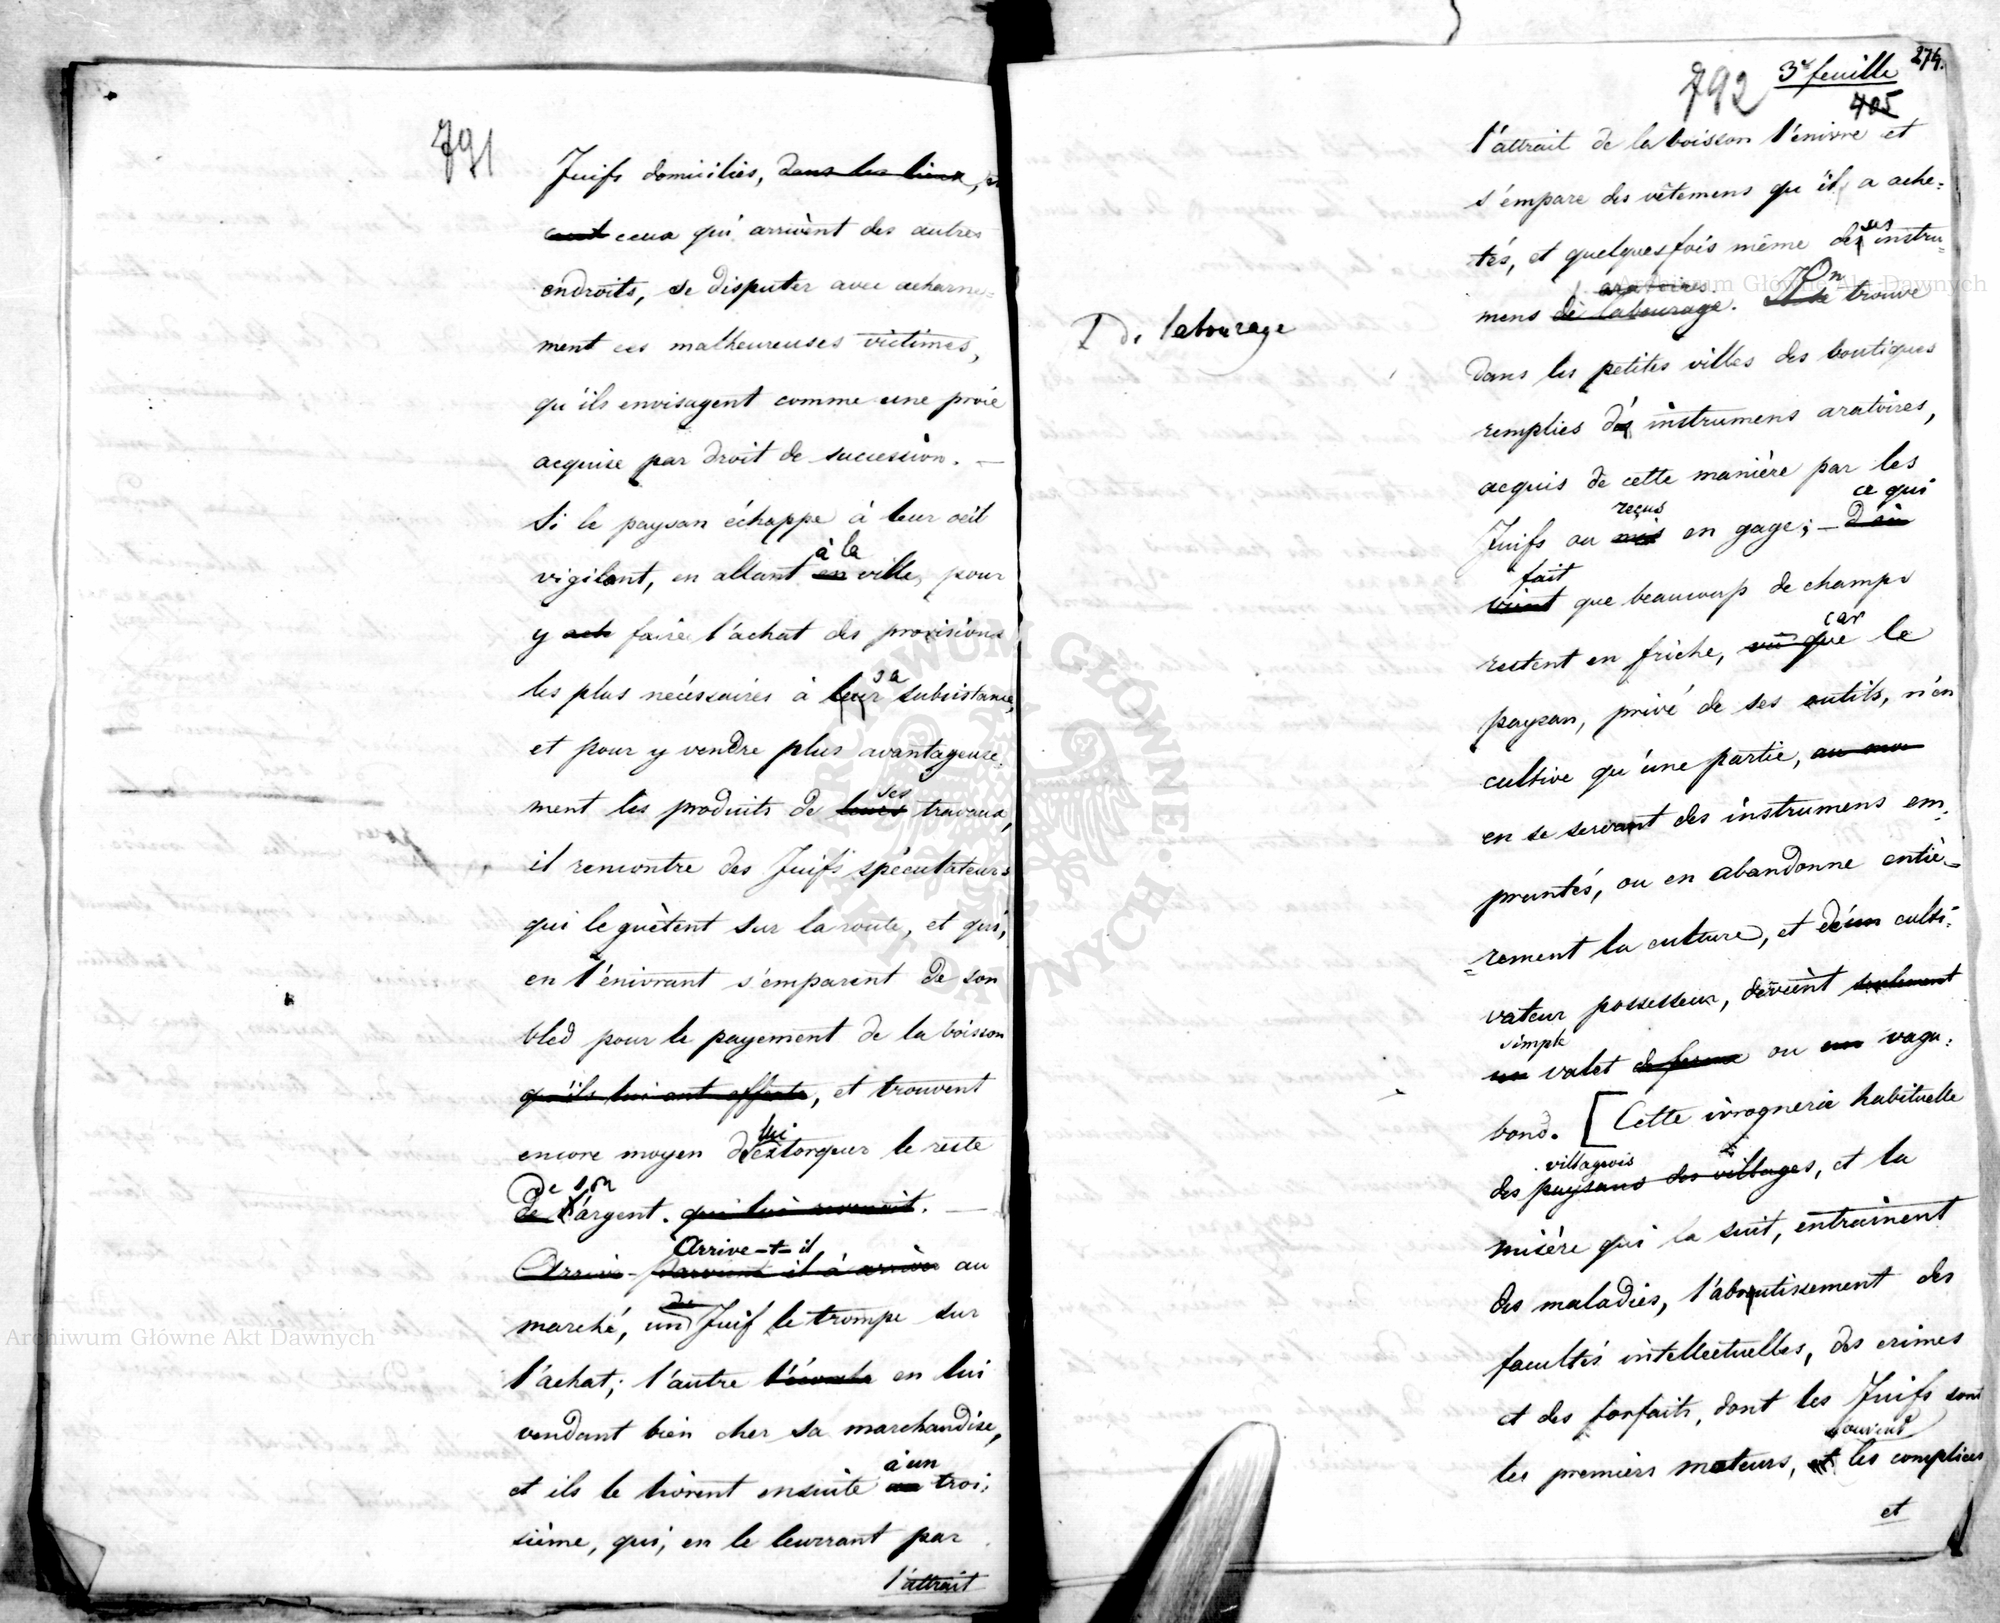 791
Juifs domiciliés, dans les lieux, et
ceux qui arrivent des autres
endroits, se disputer avec acharne=
ment ces malheureuses victimes,
qu'ils envisagent comme une proie
acquise par droit de succession. —
Si le paysan échappe à leur oeil
à la
vigilant, en allant en ville, pour
y ach faire l'achat des provisions
sa
les plus nécessaires à leur subsistance,
et pour y vendre plus avantageuse=
ses
ment les produits de leurs travaux,
il rencontre des Juifs spéculateurs
qui le guètent sur la route, et qui,
en l'enivrant s'emparent de son
bled pour le payement de la boisson
qu'ils lui ont offerte, et trouvent
lui
encore moyen d'extorquer le reste
de son
de l'argent. qui lui revenait. —
Arrive-t-il
Arrive- parvient il à arriver au
marché, un Juif le trompe sur
l'achat; l'autre l'écorche en lui
vendant bien cher sa marchandise,
à un
et ils le livrent ensuite au troi=
sième, qui, en le leurrant par
l'attrait
274.
792 3e feuille
405
l'attrait de la boisson l'enivre et
s'empare des vêtemens qu'il a ache=
ses
tés, et quelquesfois même des instru=
aratoires On
mens de labourage. Il se trouve
I de labourage
dans les petites villes des boutiques
remplies des instrumens aratoires,
acquis de cette manière par les
reçus ce qui
Juifs ou mis en gage; — d'où
fait
vient que beaucoup de champs
car
restent en friche, vu que le
paysan, privé de ses outils, n'en
cultive qu'une partie, au moy
en se servant des instrumens em=
pruntés, ou en abandonne entiè=
=rement la culture, et d'un culti=
vateur possesseur, devient seulement
simple
un valet de ferme ou un vaga=
bond. [Cette ivrognerie habituelle
villageois
des paysans des villages, et la
misère qui la suit, entrainent
des maladies, l'abrutissement des
facultés intellectuelles, des crimes
et des forfaits, dont les Juifs sont
souvent
les premiers moteurs, et les complices
et